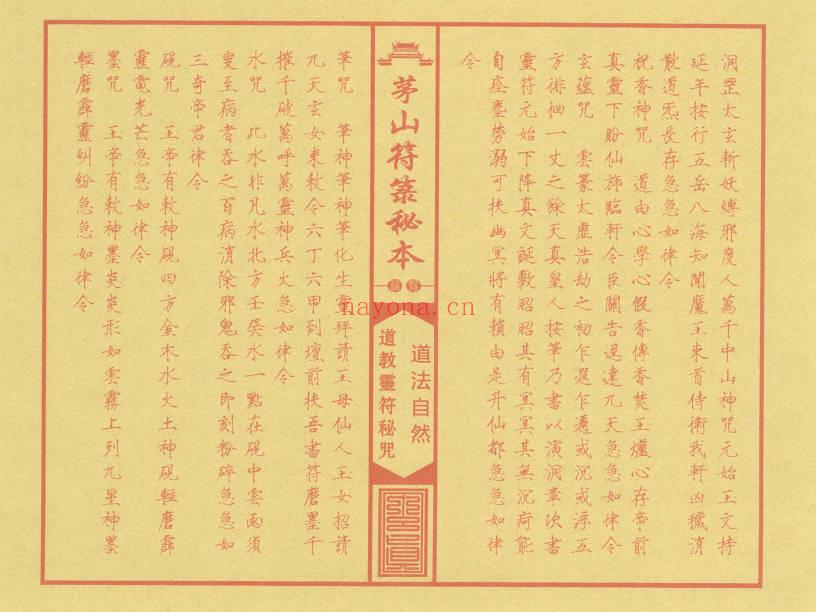 洞罡太玄斬妖縛邪度人萬千中山神咒元始玉文持
延年按行五岳八海知聞魔王束首侍衛我軒凶穢消
散道炁長存急急如律令
祝香神咒　道由心學心假香傳香焚玉爐心存帝前
真靈下盼仙旆臨軒令臣關告逕達九天急急如律令
玄蘊咒　雲篆太虛浩劫之初乍遐乍邇或沉或浮五
方徘徊一丈之餘天真皇人按筆乃書以演洞章次書
靈符元始下降真文誕敷昭昭其有冥冥其無沉疴能
自痊塵勞溺可扶幽冥將有賴由是升仙都急急如律
令
茅山符箓秘本
道法自然
道教靈符秘咒
筆咒　筆神筆神筆化生靈拜請王母仙人玉女招請
九天玄女來敕令六丁六甲到壇前扶吾書符磨墨千
摧千破萬呼萬靈神兵火急如律令
水咒　此水非凡水北方壬癸水一點在硯中雲雨須
臾至病者吞之百病消除邪鬼吞之即刻粉碎急急如
三奇帝君律令
硯咒　玉帝有敕神硯四方金木水火土神硯輕磨霹
靂電光芒急急如律令
墨咒　玉帝有敕神墨炎炎形如雲霧上列九星神墨
輕磨霹靂糾紛急急如律令
nayona.cn